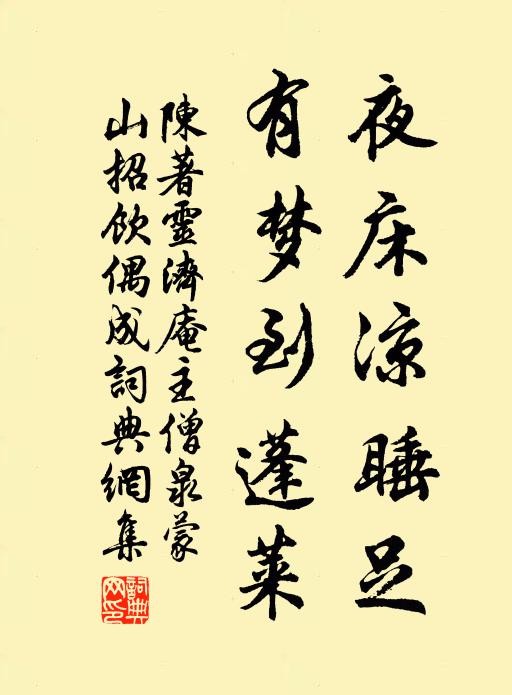 夜床凉睡足
有梦到蓬莱
陳著靈濟庵主僧泉蒙
山招飲偶成詞典網集
詞典网印